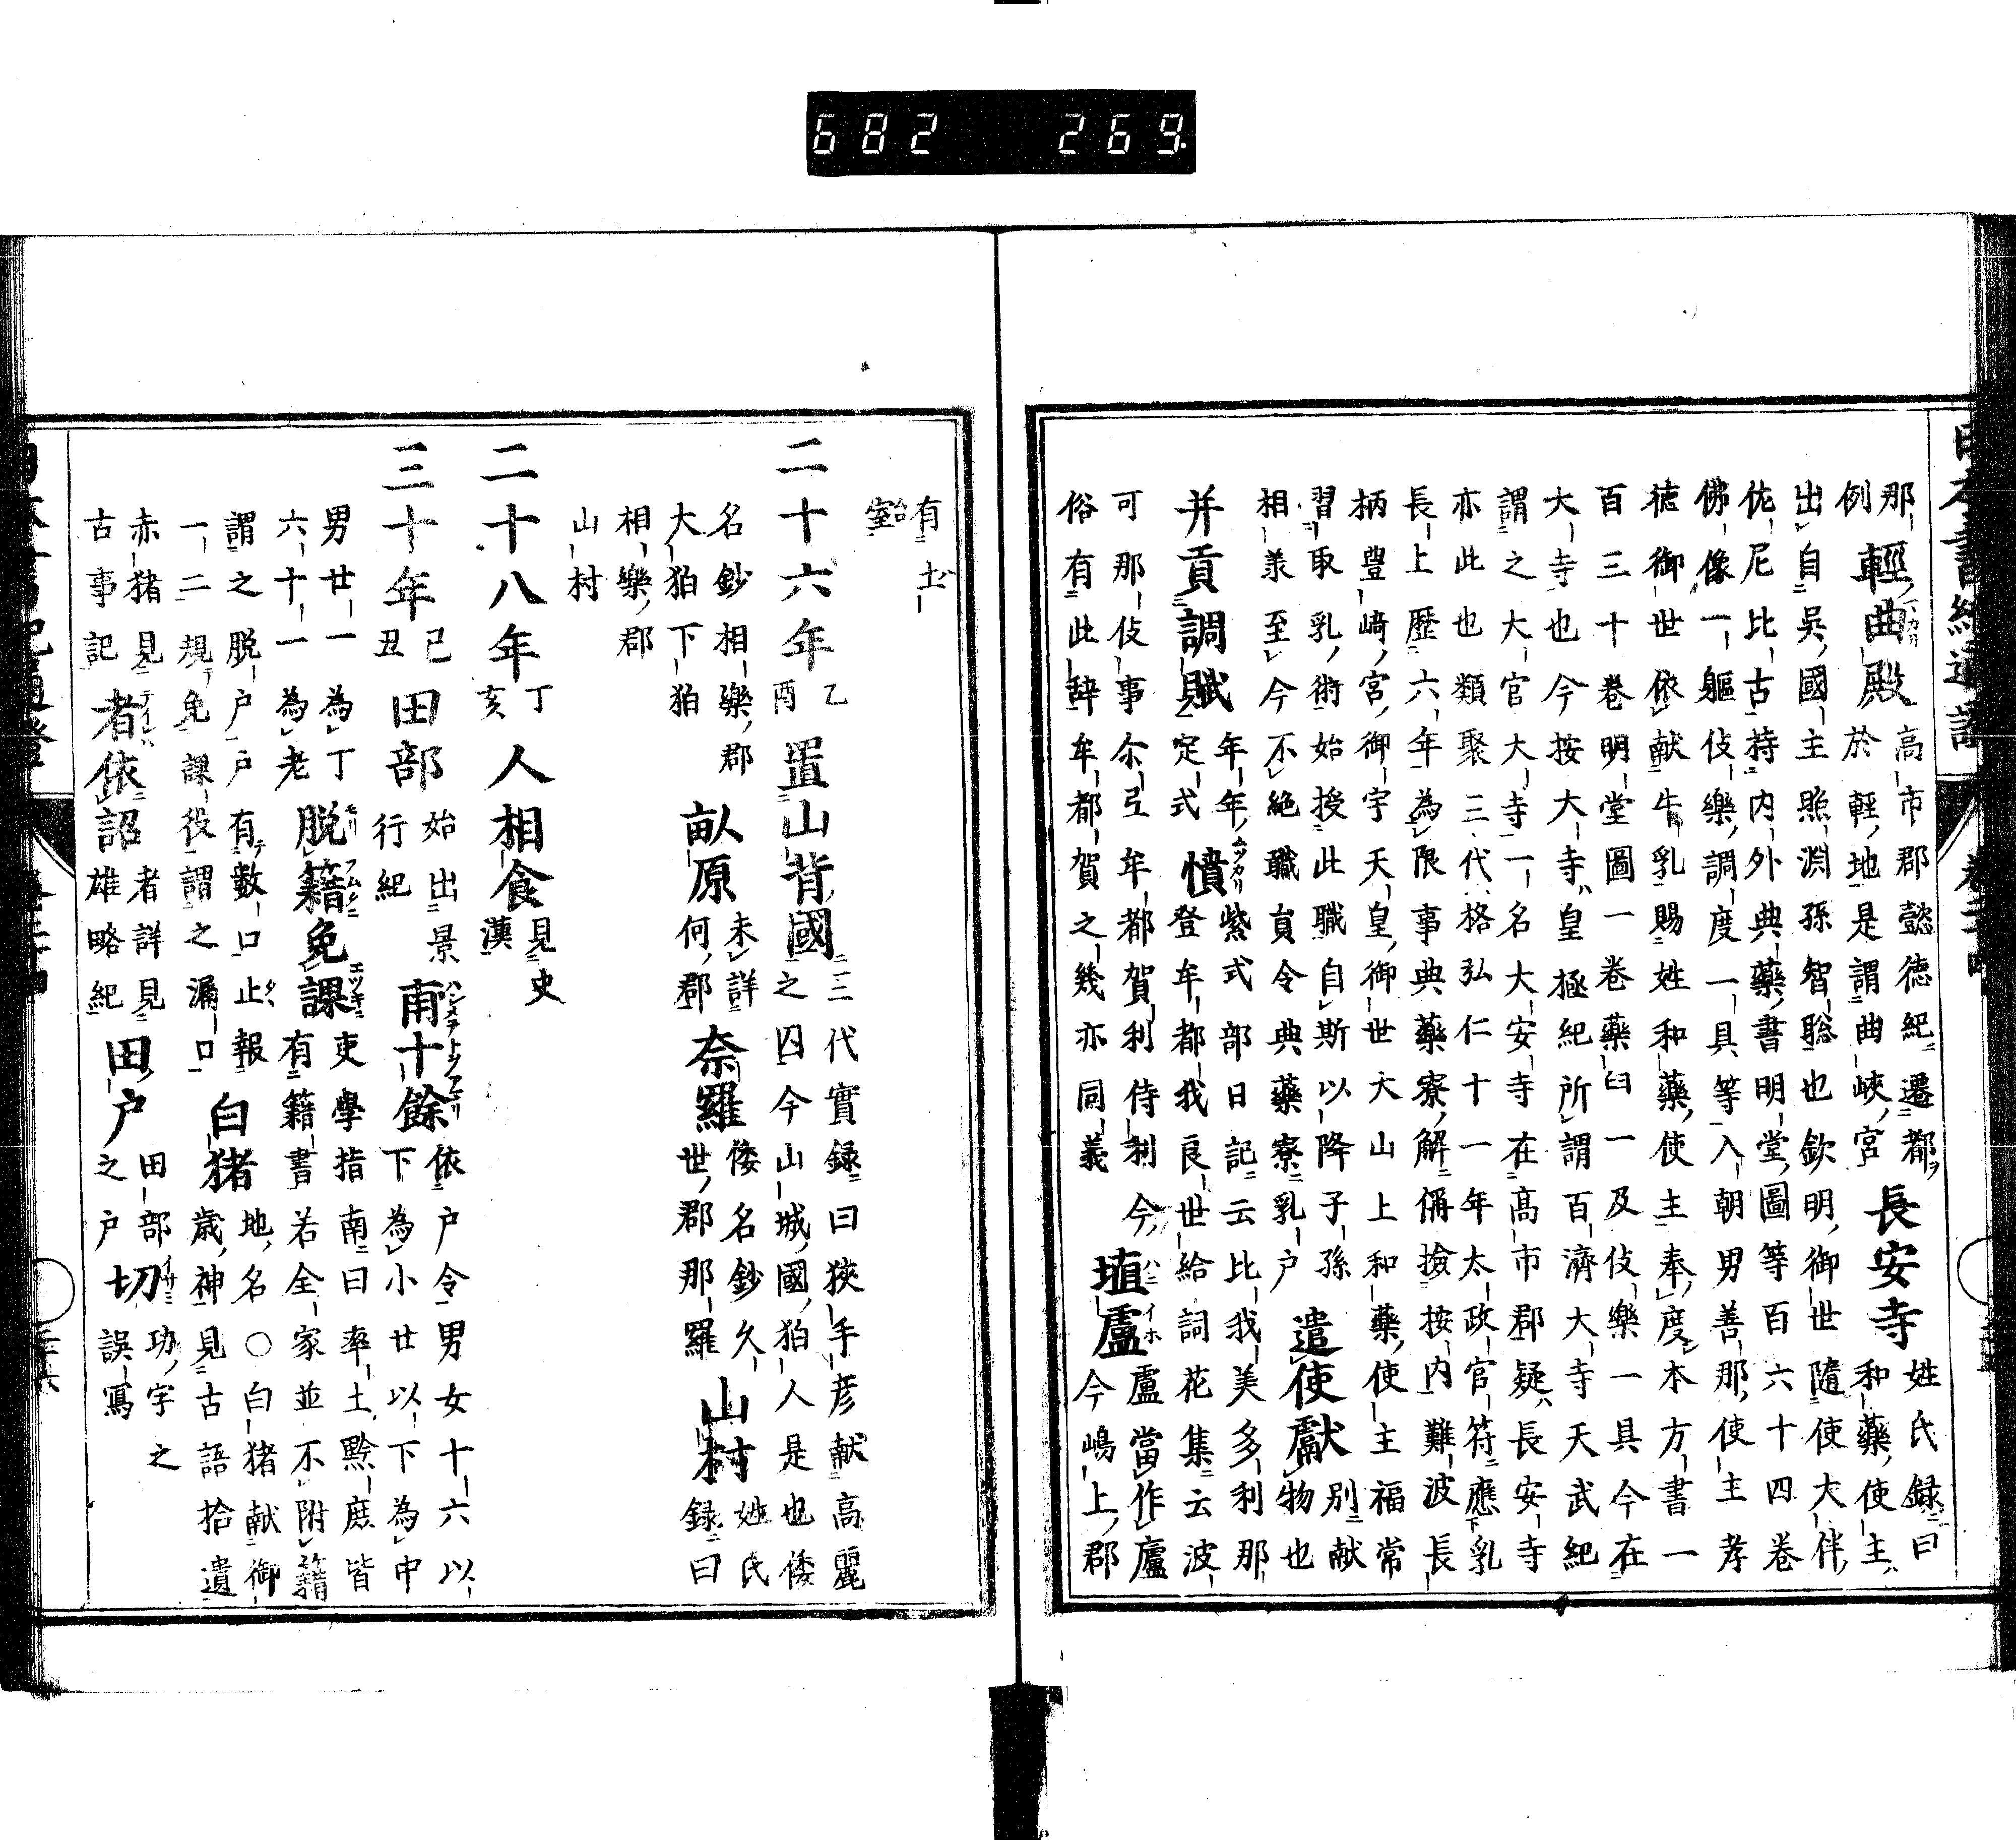 日本書紀通證
那
例
輕曲殿
高市郡懿徳紀遷都ヲ
於輕地是謂曲峽宮
長安寺
姓氏録曰
和藥使主ハ
出自吳國主照淵孫智聡也欽明御世隨使大伴
佐尼比古持内外典藥書明堂圖等百六十四卷
佛像一軀伎樂調度一具等入朝男善那使主孝
徳御世依献牛乳賜姓和藥使主奉度本方書一
百三十巻明堂圖一卷藥臼一及伎樂一具今在
大寺也今按大寺ハ皇極紀所謂百濟大寺天武紀
謂之大官大寺一名大安寺在高市郡疑ハ長安寺
亦此也類聚三代格弘仁十一年太政官符應乳
長上歷六年為限事典藥寮解偁撿按内難波長
柄豐崎宮御宇天皇御世大山上和藥使主福常
習取乳術始授此職自斯以降子孫
相羕至今不絶職員令典藥寮乳戸
遣使獻
別献
物也
并貢調賦
年年
定式
憤
ムツカリ
紫式部日記云比我美多利那
登牟都我良世給詞花集云波
可那伎事尒弖牟都賀利侍利今
俗有此辞牟都賀之幾亦同義
埴盧
ハニイホ
盧當作廬
今嶋上郡
有土
室
二十六年
乙
酉
置山背國
三代實録曰狹手彦献高麗
之囚今山城國狛人是也倭
名鈔相樂郡
大狛下狛
畝原
未詳
何郡
奈羅
倭名鈔久
世郡那羅
山村
姓氏
録曰
相樂郡
山村
二十八年
丁
亥
人相食
見史
漢
三十年
己
丑
田部
始出景
行紀
甫十餘
依戸令男女十六以
下為小廿以下為中
男廿一為丁
六十一為老
脱籍免課
吏學指南曰率土黔庶皆
有籍書若全家並不附籍
謂之脱戸戸有數口止報
一二規免課役謂之漏口
白猪
地名〇白猪献御
歳神見古語拾遺
赤猪見
古事記
者依詔
者詳見
雄略紀
田戸
田部
之戸
切
イサミ
功字之
誤寫